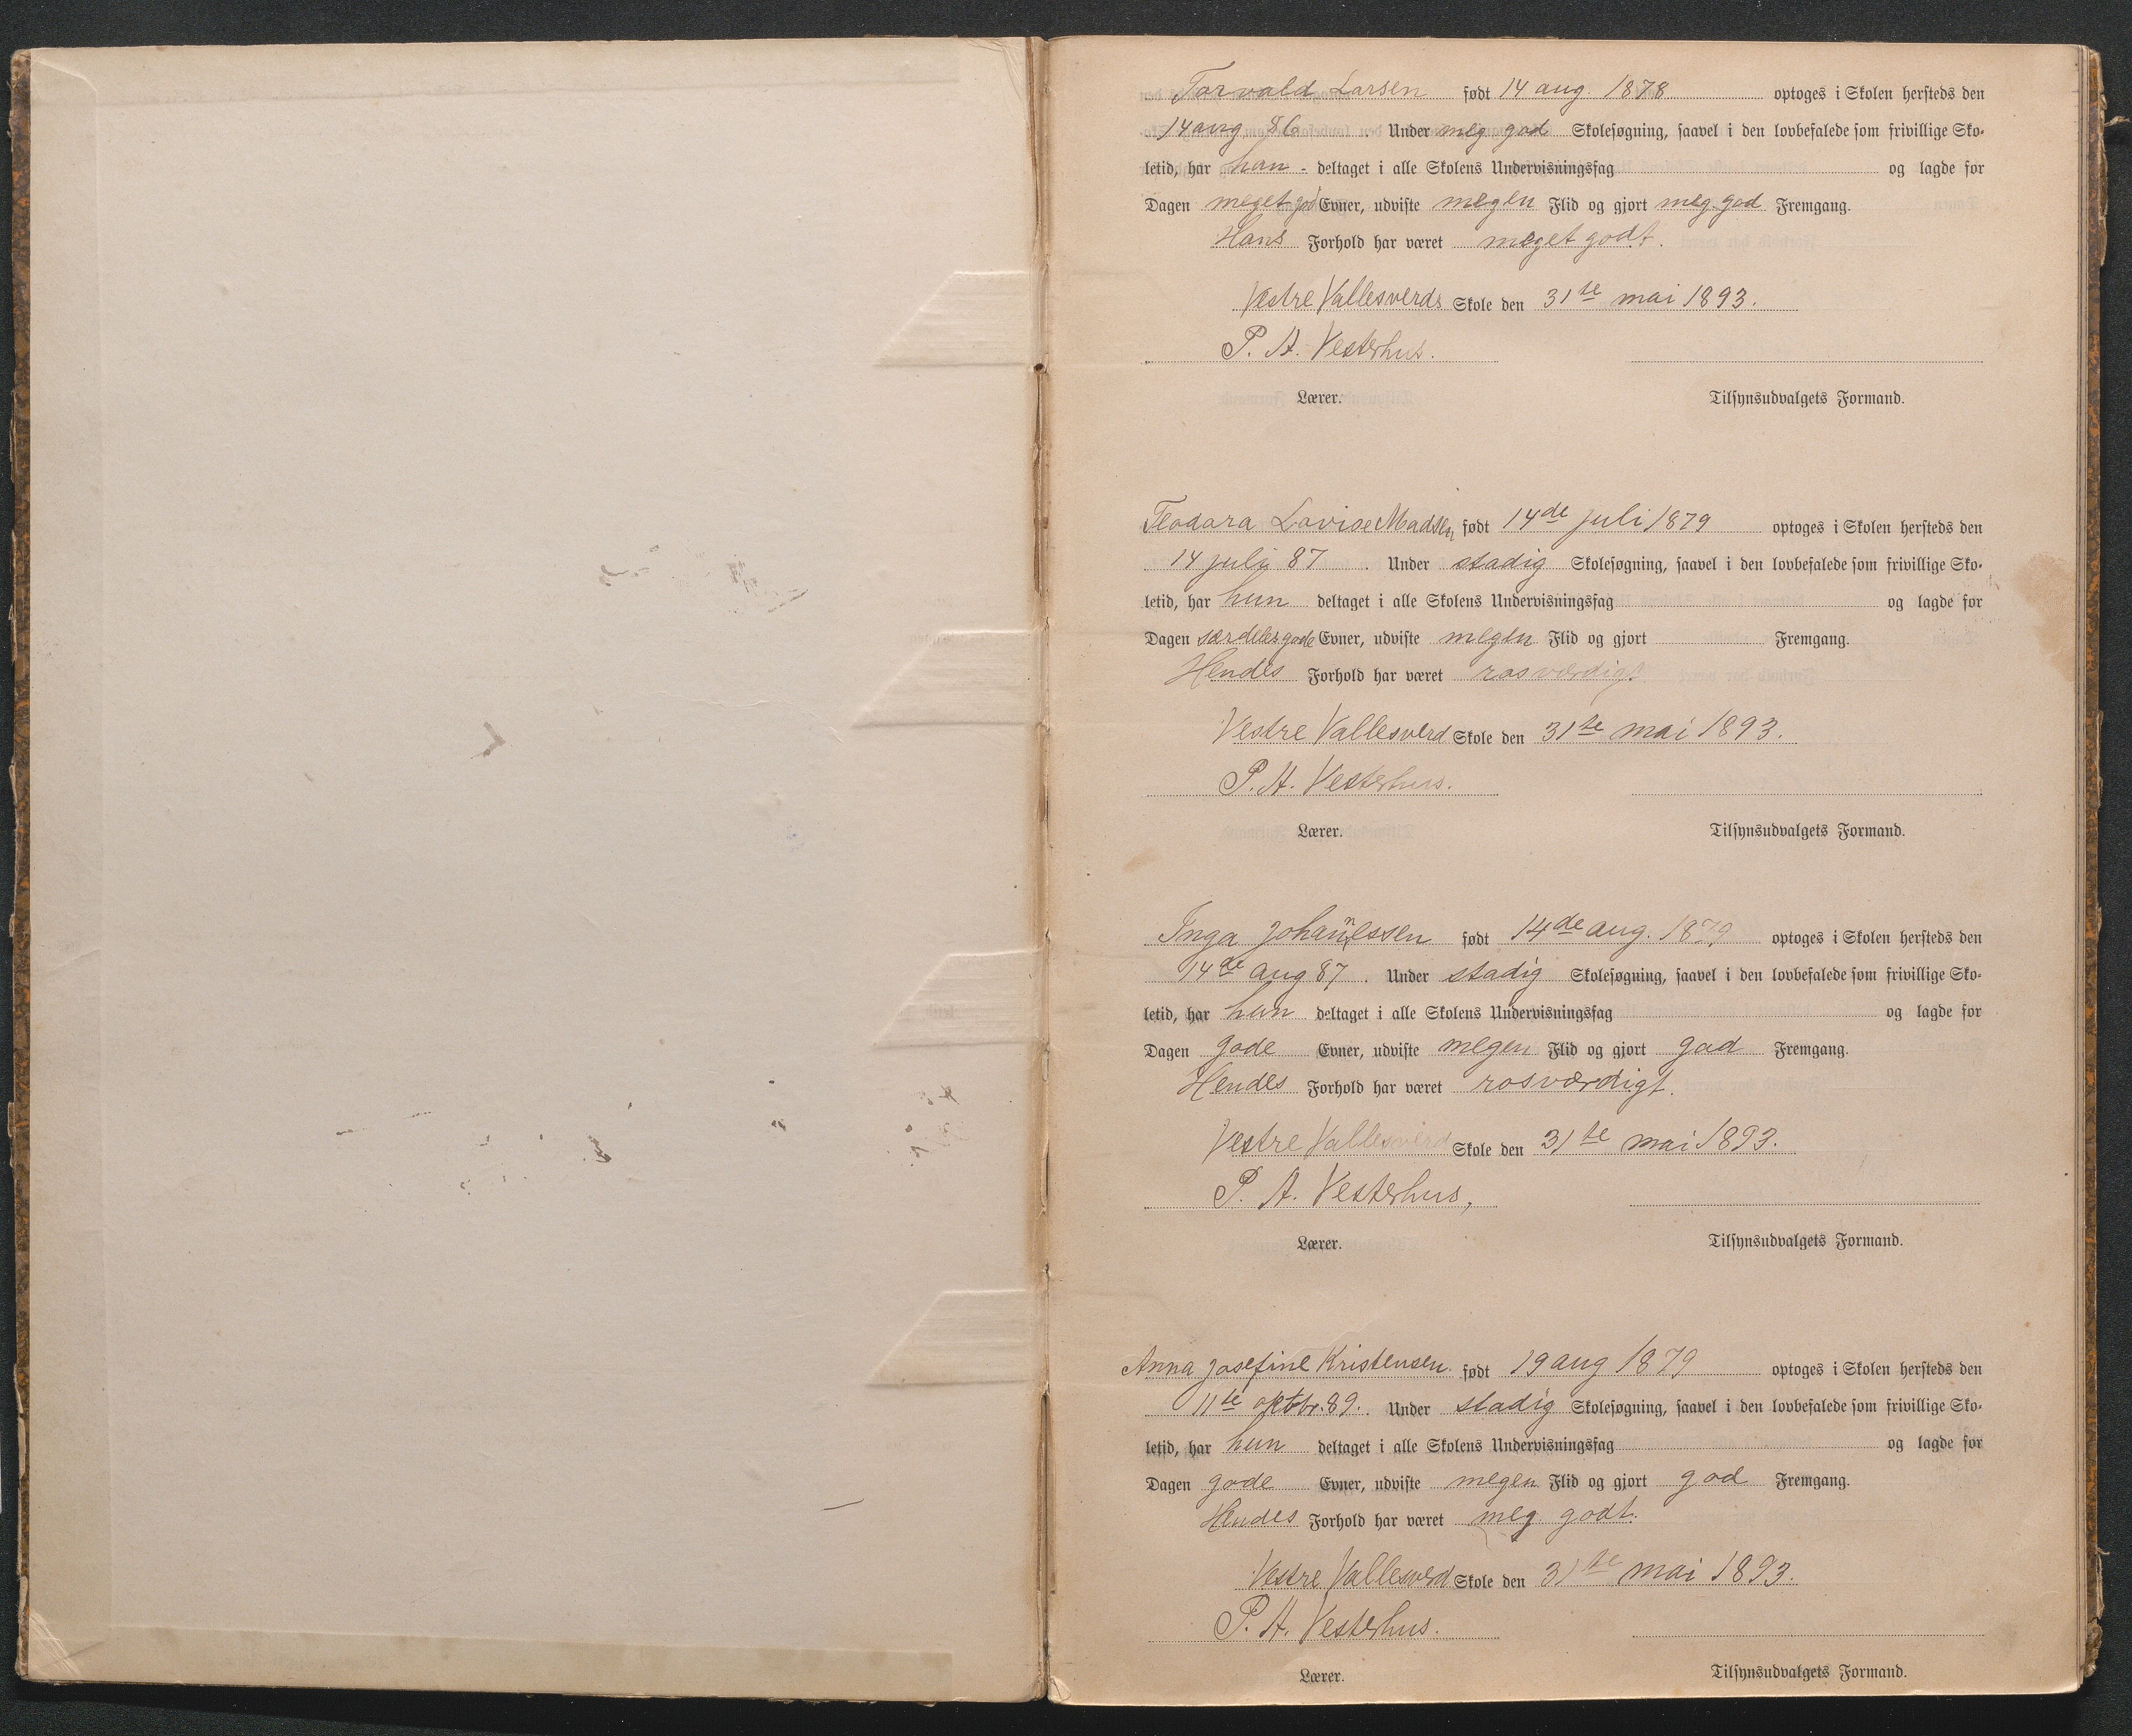 Torvald Larsen født 14 aug. 1878 optoges i Skolen hersteds den
14 aug 86 . Under meg god Skolesøgning, saavel i den lovbefalede som frivillige Sko-
letid, har han - deltaget i alle Skolens Undervisningsfag og lagde for
Dagen meget god Evner, udviste megen Flid og gjort meg. god Fremgang.
Hans Forhold har været meget godt.
Vestre Vallesverds Skole den 31te mai 1893.
P. A. Vesterhus.
Lærer. Tilsynsudvalgets Formand.
Teodora Lovise Madsen født 14de juli 1879 optoges i Skolen hersteds den
14 juli 87 . Under stadig Skolesøgning, saavel i den lovbefalede som frivillige Sko-
letid, har hun deltaget i alle Skolens Undervisningsfag og lagde for
Dagen særdeles gode Evner, udviste megen Flid og gjort Fremgang.
Hendes Forhold har været rosværdigt
Vestre Vallesverd Skole den 31te mai 1893.
P. A. Vesterhus.
Lærer. Tilsynsudvalgets Formand.
Inga Johannessen født 14de aug. 1879 optoges i Skolen hersteds den
14de aug 87 . Under stadig Skolesøgning, saavel i den lovbefalede som frivillige Sko-
letid, har hun deltaget i alle Skolens Undervisningsfag og lagde for
Dagen gode Evner, udviste megen Flid og gjort god Fremgang.
Hendes Forhold har været rosværdigt.
Vestre Vallesverd Skole den 31te mai 1893.
P. A. Vesterhus,
Lærer. Tilsynsudvalgets Formand.
Anna Josefine Kristensen. født 19 aug 1879 optoges i Skolen hersteds den
11te oktbr. 89. Under stadig Skolesøgning, saavel i den lovbefalede som frivillige Sko-
letid, har hun deltaget i alle Skolens Undervisningsfag og lagde for
Dagen gode Evner, udviste megen Flid og gjort god Fremgang.
Hendes Forhold har været meg godt.
Vestre Vallesverd Skole den 31te mai 1893.
P. A. Vesterhus.
Lærer. Tilsynsudvalgets Formand.